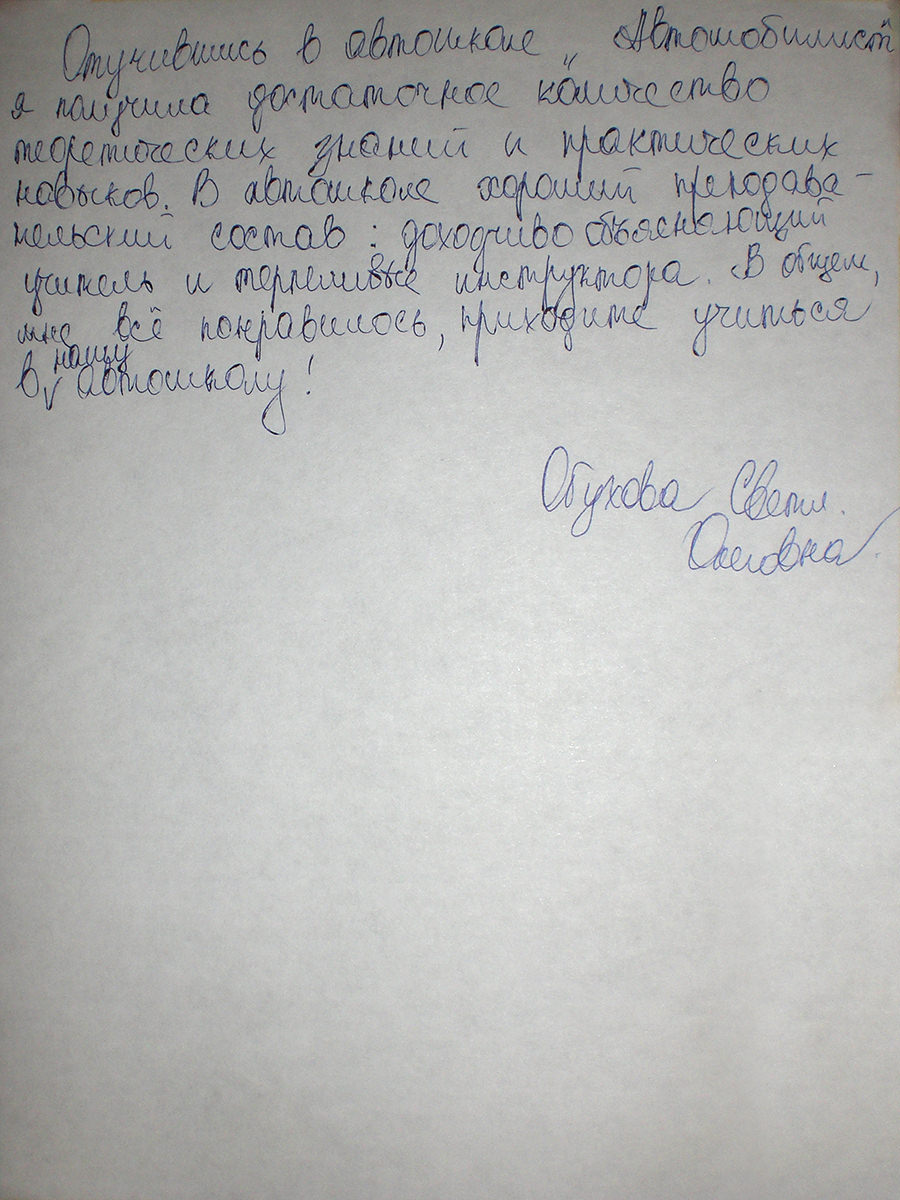 Отучившись в автошколе „Автомобилист"
я получила достаточное количество
теоретических знаний и практических
навыков. В автошколе хороший преподава-
тельский состав: доходчиво объясняющий
учитель и терпеливые инструктора. В общем,
мне всё понравилось, приходите учиться
в нашу автошколу!
Обухова Светл.
Олеговна